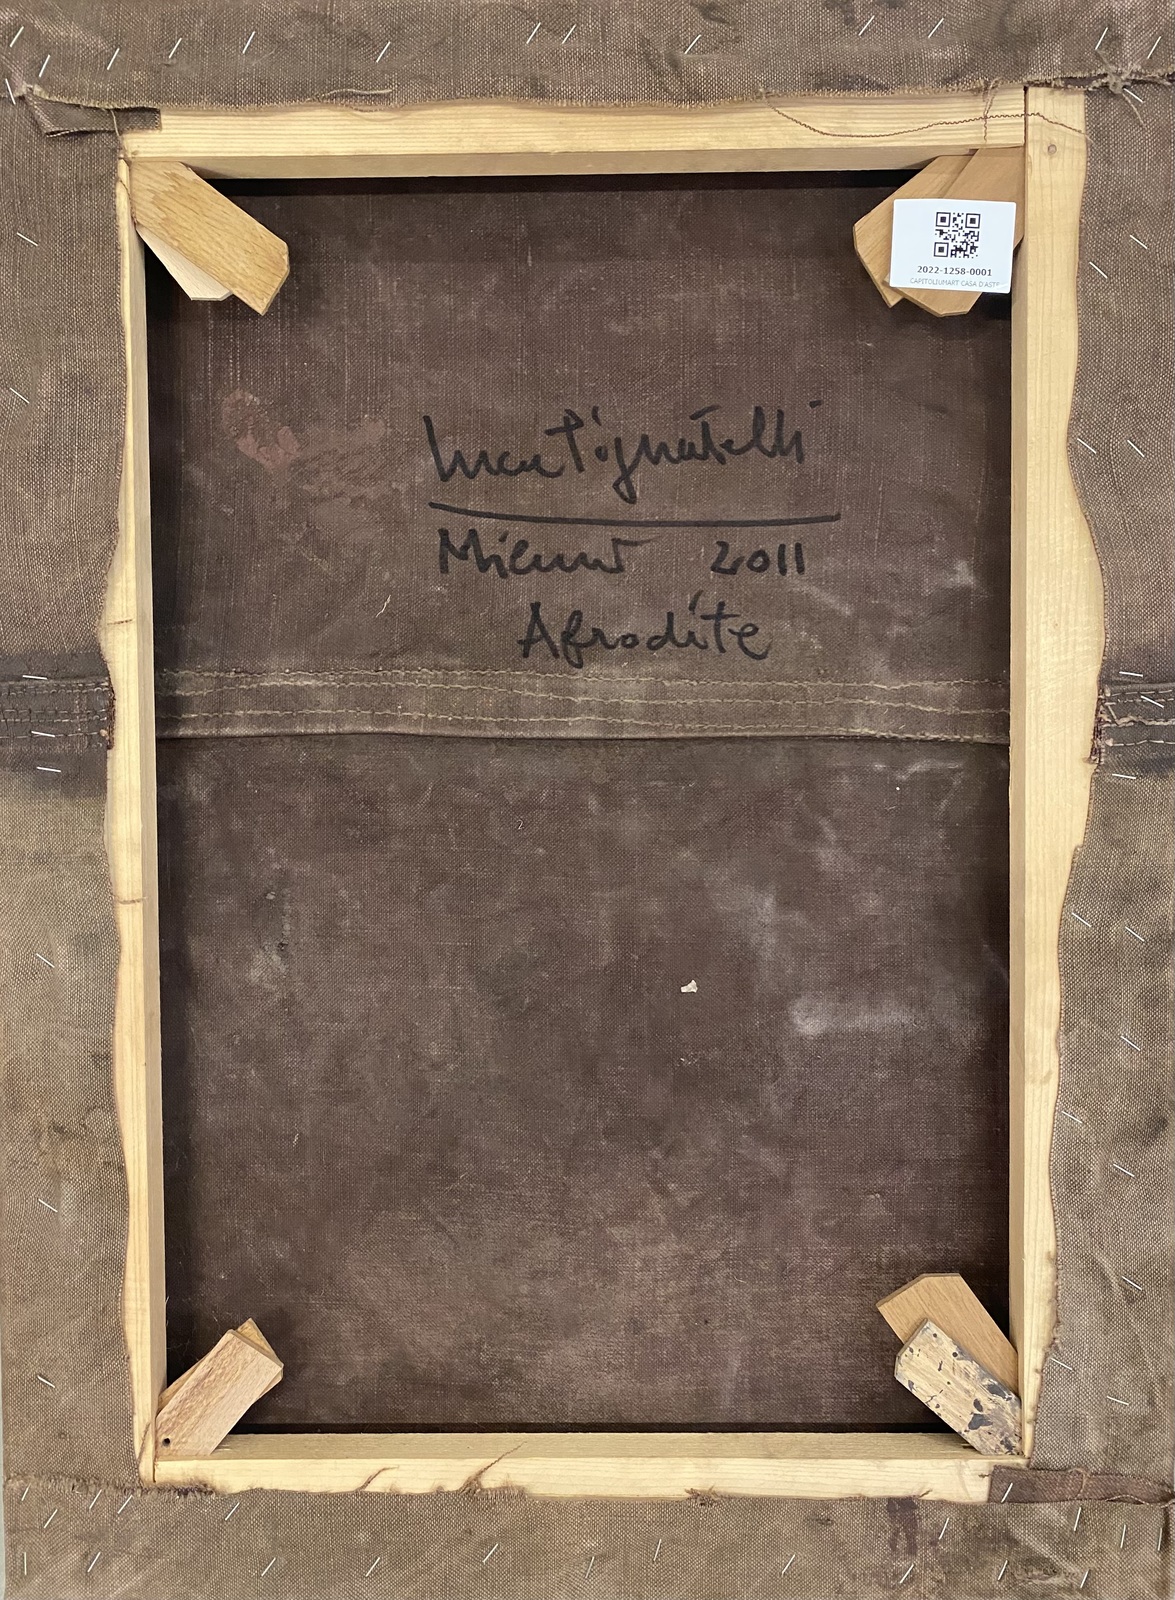 2022-1258-0001
CAPITOLIUMART CASA D'ASTE
Luca Pignatelli
Milano 2011
Afrodite